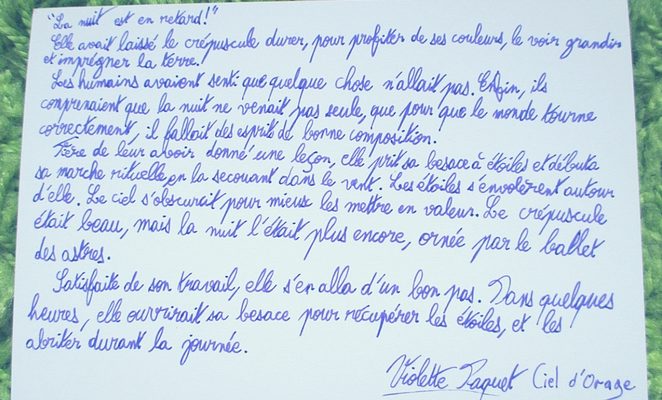 "La nuit est en retard!"
Elle avait laissé le crépuscule durer, pour profiter de ses couleurs, le voir grandir
et imprégner la terre.
Les humains avaient senti que quelque chose n'allait pas. Enfin, ils
comprenaient que la nuit ne venait pas seule, que pour que le monde tourne
correctement, il fallait des esprits de bonne composition.
Fière de leur avoir donné une leçon, elle prit sa besace à étoiles et débuta
sa marche rituelle, en la secouant dans le vent. Les étoiles s'envolèrent autour
d'elle. Le ciel s'obscurait pour mieux les mettre en valeur. Le crépuscule
était beau, mais la nuit l'était plus encore, ornée par le ballet
des astres.
Satisfaite de son travail, elle s'en alla d'un bon pas. Dans quelques
heures, elle ouvrirait sa besace pour récupérer les étoiles, et les
abriter durant la journée.
Violette Paquet Ciel d'Orage